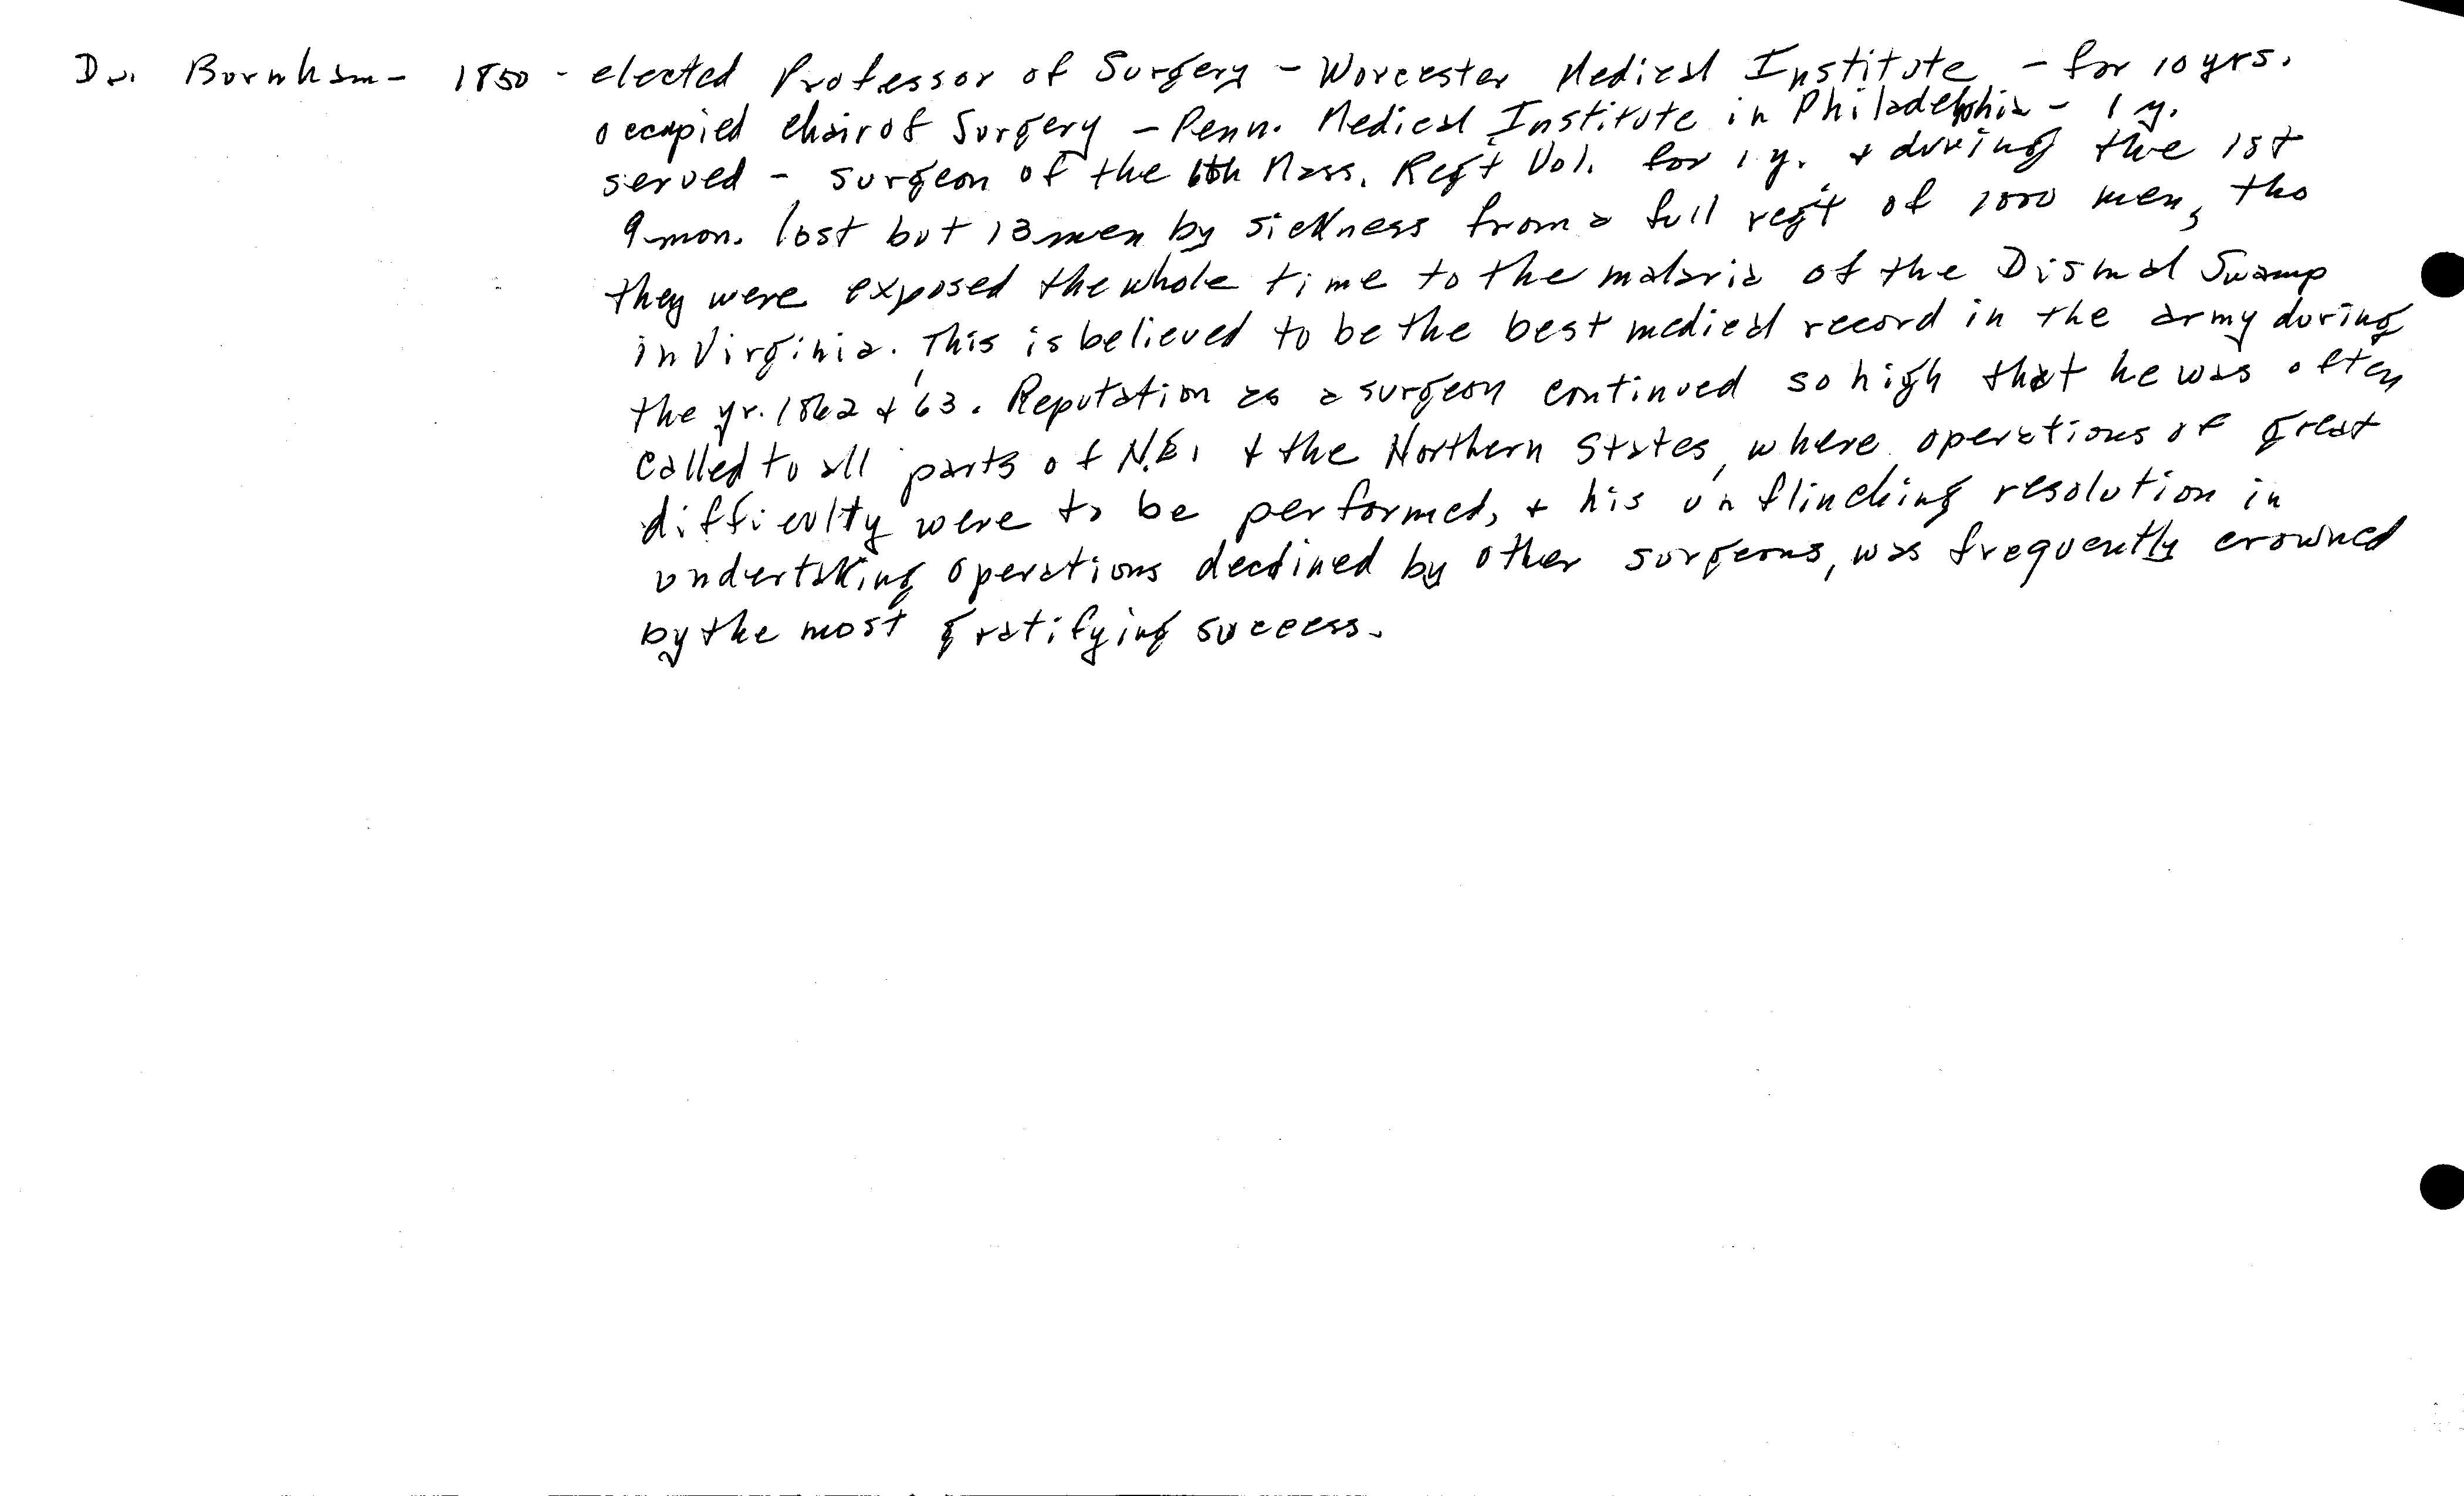 Dr. Burnham - 1850 - elected Professor of Surgery - Worcester Medical Institute - for 10 yrs.
occupied chair of Surgery - Penn. Medical Institute in Philadelphia - 1 y.
served - surgeon of the 6th Mass. Reg't Vol. for 1 y. + during the 1st
9 mon. lost but 13 men by sickness from a full reg't of 1000 men, tho
they were exposed the whole time to the malaria of the Dismal Swamp
in Virginia. This is believed to be the best medical record in the army during
the yr. 1862 + '63. Reputation as a surgeon continued so high that he was often
called to all parts of N.E. + the Northern States, where operations of great
difficulty were to be performed, + his unflinching resolution in
undertaking operations declined by other surgeons, was frequently crowned
by the most gratifying success.